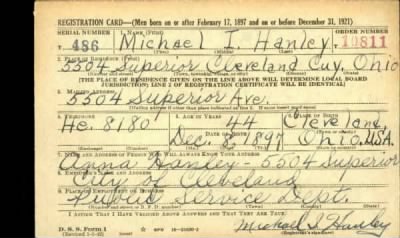 REGISTRATION CARD—(Men born on or after February 17, 1897 and on or before December 31, 1921)
SERIAL NUMBER 1. NAME (Print) ORDER NUMBER
T 486 Michael I. Hanley 10811
(First) (Middle) (Last)
2. PLACE OF RESIDENCE (Print)
5504 Superior Cleveland Cuy. Ohio
(Number and street) (Town, township, village, or city) (County) (State)
[THE PLACE OF RESIDENCE GIVEN ON THE LINE ABOVE WILL DETERMINE LOCAL BOARD
JURISDICTION; LINE 2 OF REGISTRATION CERTIFICATE WILL BE IDENTICAL]
3. MAILING ADDRESS
5504 Superior Ave.
[Mailing address if other than place indicated on line 2. If same insert word same]
4. TELEPHONE 5. AGE IN YEARS 6. PLACE OF BIRTH
He. 8180 44 Cleveland,
DATE OF BIRTH (Town or county)
Dec. 1897 Ohio. USA.
(Exchange) (Number) (Mo.) (Day) (Yr.) (State or country)
7. NAME AND ADDRESS OF PERSON WHO WILL ALWAYS KNOW YOUR ADDRESS
Anna Hanley - 5504 Superior
8. EMPLOYER'S NAME AND ADDRESS
City of Cleveland
9. PLACE OF EMPLOYMENT OR BUSINESS
Public Service Dept.
(Number and street or R. F. D. number) (Town) (County) (State)
I AFFIRM THAT I HAVE VERIFIED ABOVE ANSWERS AND THAT THEY ARE TRUE.
D. S. S. Form 1
(Revised 1-1-42) (over) Michael I Hanley